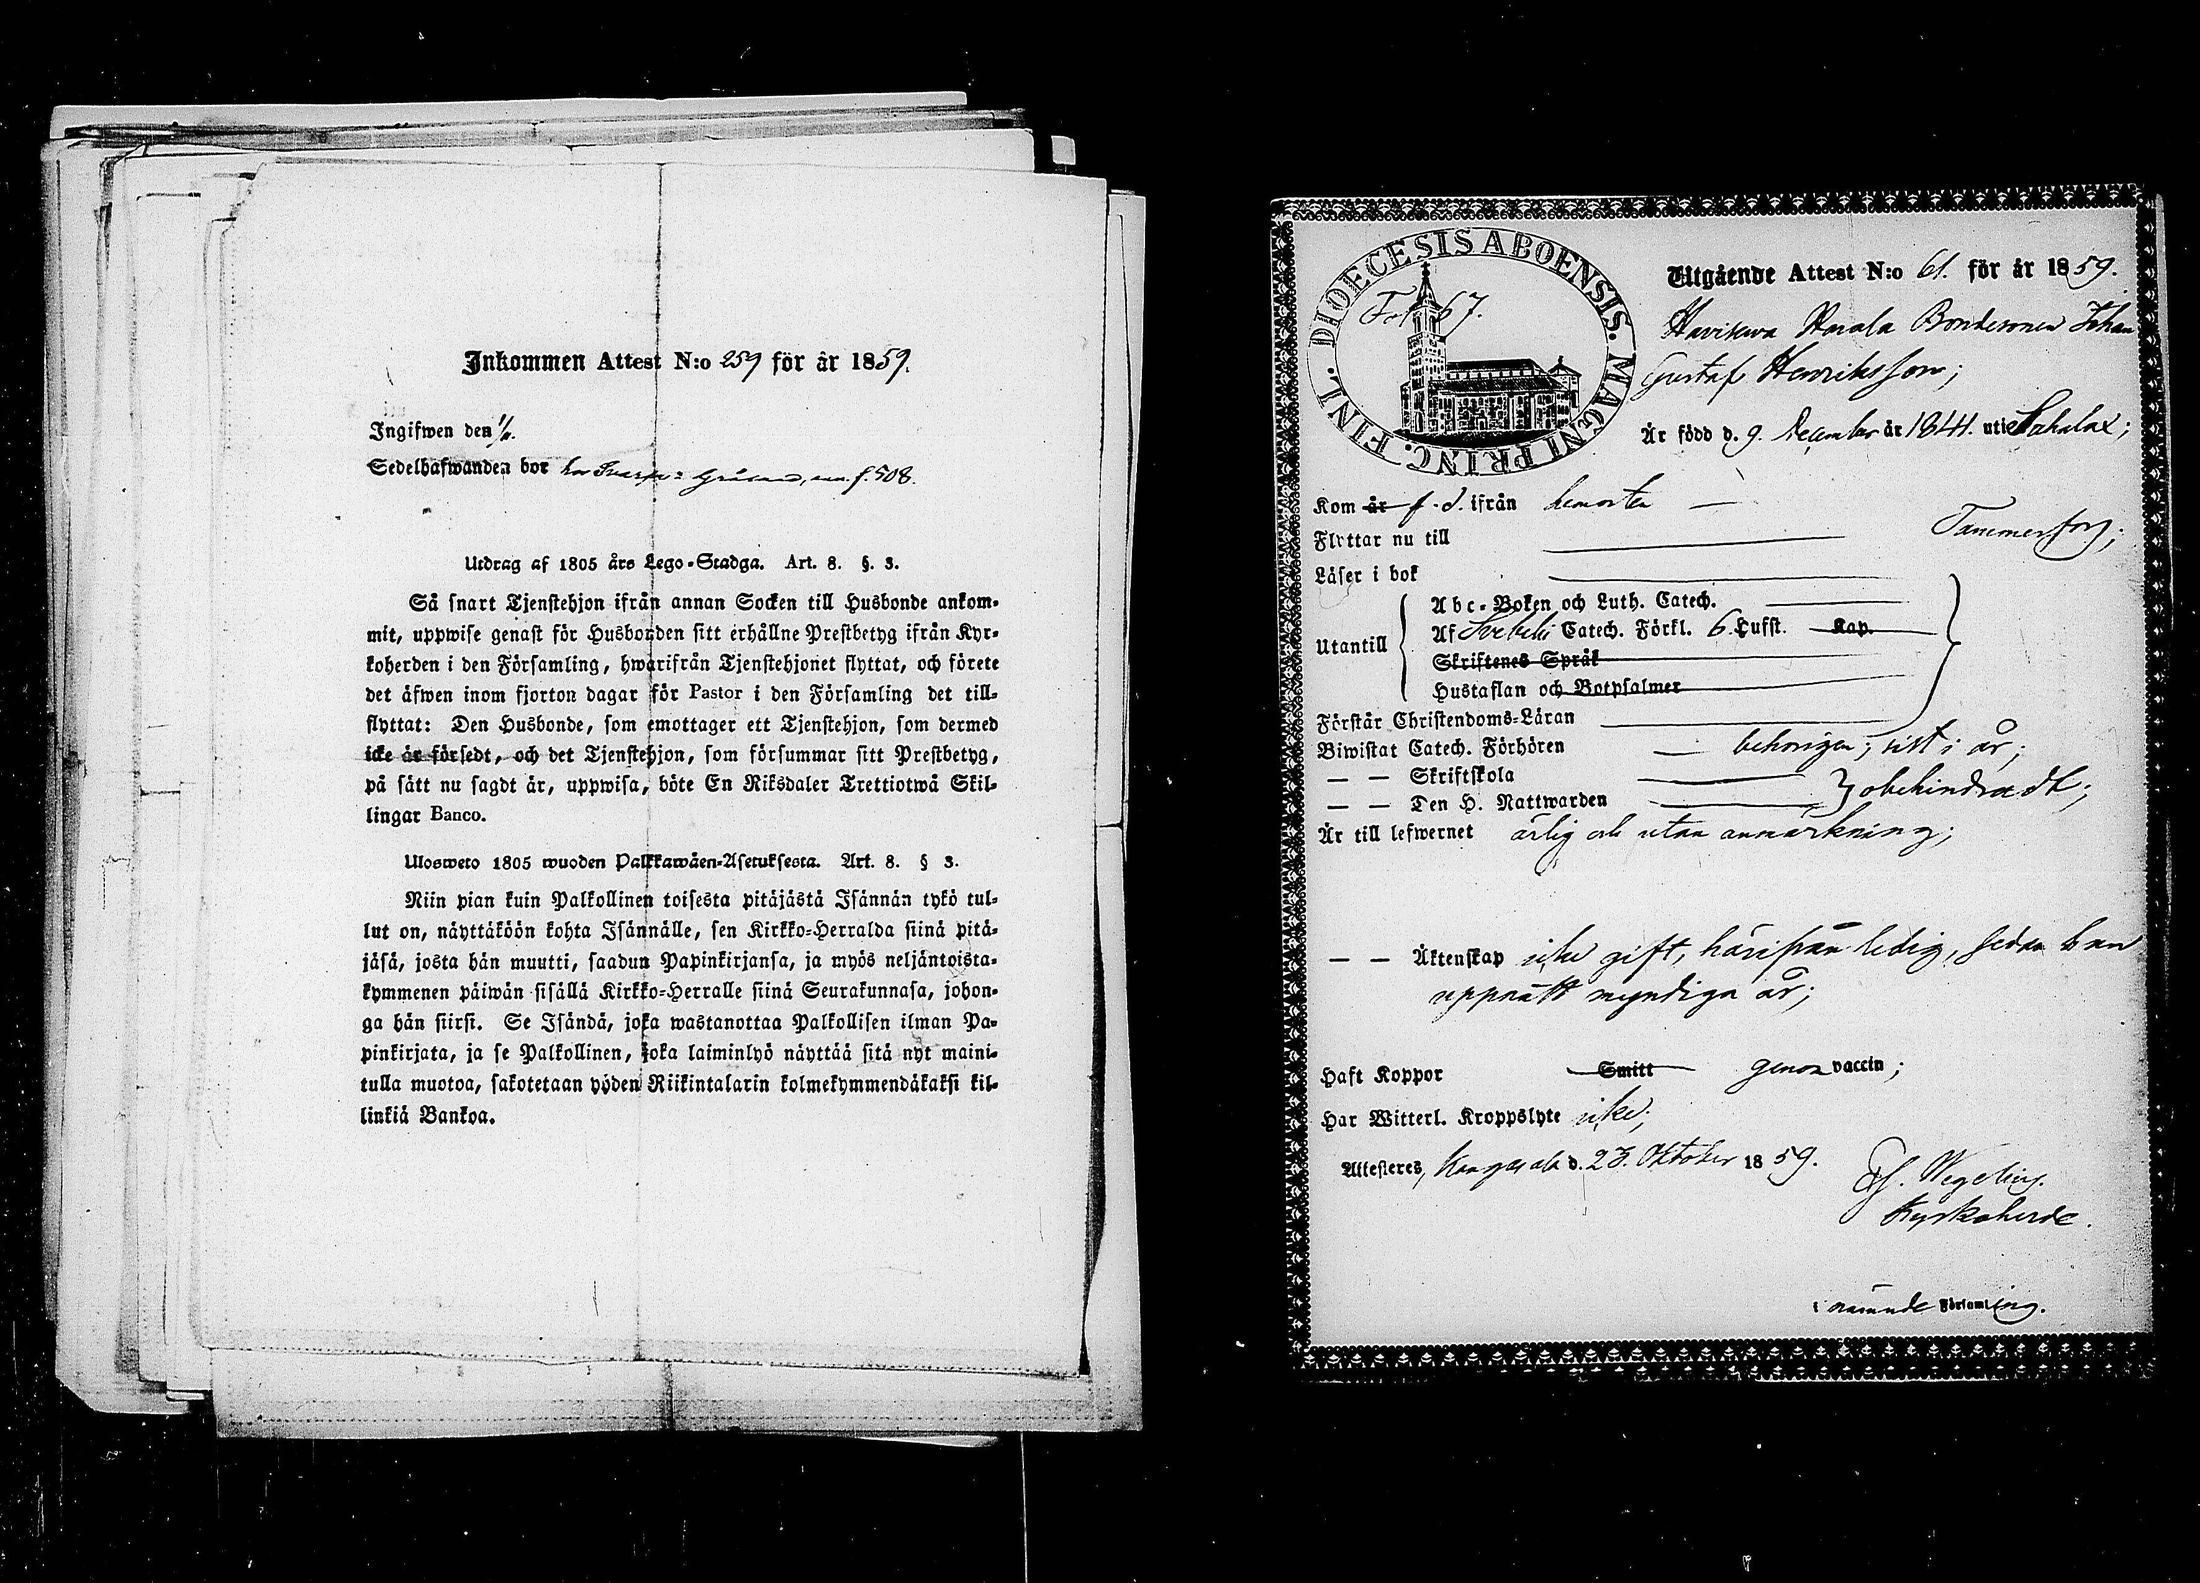 Inkommen Attest N:o 259 för år 1859.
Ingifwen den 1/11.
Sedelhafwanden bor hos f. 508.
Utdrag af 1805 års Lego-Stadga. Art. 8. §. 3.
Så snart Tjenstehjon ifrån annan Socken till Husbonde ankom-
mit, uppwise genast för Husbonden sitt erhållne Prestbetyg ifrån Kyr-
koherden i den Församling, hwarifrån Tjenstehjonet flyttat, och förete
det äfwen inom fjorton dagar för Pastor i den Församling det till-
flyttat: Den Husbonde, som emottager ett Tjenstehjon, som dermed
icke är försedt, och det Tjenstehjon, som försummar sitt Prestbetyg,
på sätt nu sagdt är, uppwisa, böte En Riksdaler Trettiotwå Skil-
lingar Banco.
Ulosweto 1805 wuoden Palkkawäen-Asetuksesta. Art. 8. § 3.
Niin pian kuin Palkollinen toisesta pitäjästä Isännän tykö tul-
lut on, näyttäköön kohta Isännälle, sen Kirkko-Herralda siinä pitä-
jäsä, josta hän muutti, saadun Papinkirjansa, ja myös neljäntoista-
kymmenen päiwän sisällä Kirkko-Herralle siinä Seurakunnasa, johon-
ga hän siirsi. Se Isändä, joka wastanottaa Palkollisen ilman Pa-
pinkirjata, ja se Palkollinen, joka laiminlyö näyttää sitä nyt maini-
tulla muotoa, sakotetaan yhden Riikintalarin kolmekymmendäkaksi kil-
linkiä Bankoa.
DIOECESIS ABOENSIS. MAGNI PRINC. FINL.
Fol. 67.
Utgående Attest N:o 61. för år 1859.
Havisewa Harala Bondesonen Johan
Gustaf Henriksson;
Är född d. 9. December år 1841. uti Sahalax;
Kom år f. d. ifrån hemorten
Flyttar nu till Tammerfors;
Läser i bok
Utantill
Abc-Boken och Luth. Catech.
Af Svebelii Catech. Förkl. 6. Hufst. Kap.
Skriftenes Språk
Hustaflan och Botpsalmer
Förstår Christendoms-Läran
Biwistat Catech. Förhören behörigen; sist i år;
— — Skriftskola
— — Den H. Nattwarden obehindradt;
Är till lefwernet ärlig och utan anmärkning;
— — Äktenskap icke gift, härifrån ledig, sedan han
uppnått myndiga år;
Haft Koppor Smitt genom vaccin;
Har Witterl. Kroppslyte icke;
Attesteres, Kangasala d. 23. Oktober 1859.
Wegelius.
Kyrkoherde.
i nämnde Församling.